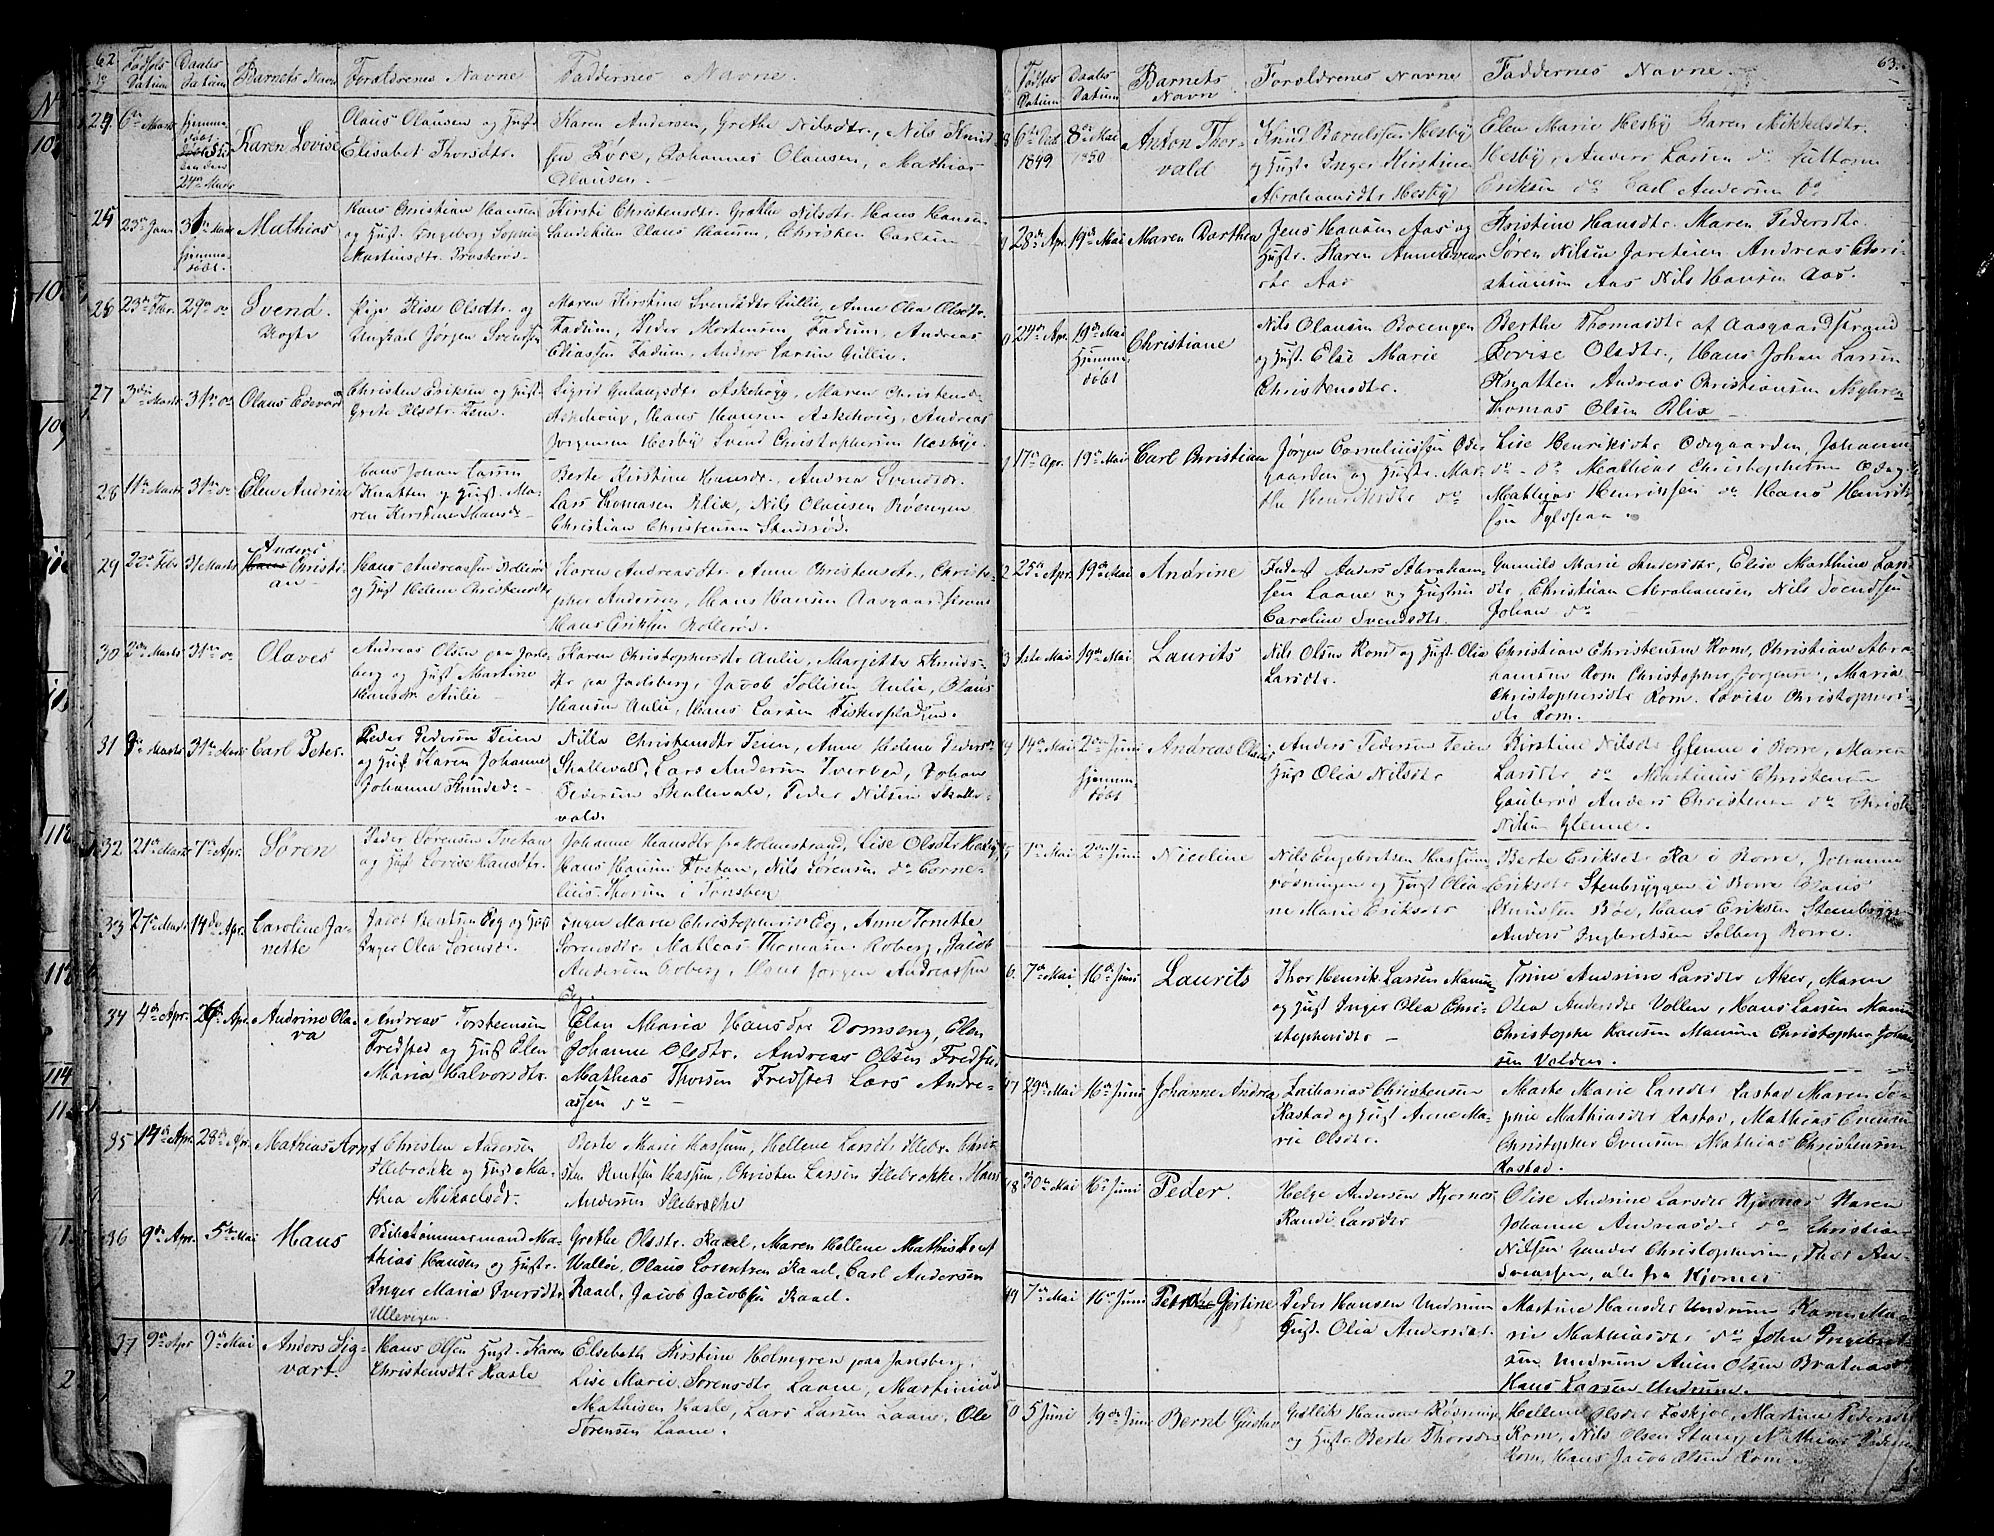 62
No
Fødsels Datum
Daabs Datum
Barnets Navn
Forældrenes Navne
Faddernes Navne.
24
6te Marts
hjemmedøbt
24de Marts
Karen Lovise
Olaus Olausen og Hust
Elisabet Thorsdtr.
Karen Andersen, Grethe Nilsdtr., Nils Knud-
sen Røre, Johannes Olausen, Mathias
Olausen.
25
23de Janr
31te Marts
hjemmedøbt.
Mathias
Hans Christian Hansen
og Hust. Ingeborg Sophie
Martinsdtr.
Kirsti Christensdtr. Grethe Nilsdtr. Hans Hansen
Olaus Hansen, Christen Carlsen
26
23de Febr.
29de do
Svend.
Pige Lise Olsdtr. og
Ungkarl Jørgen Svendsen
Maren Kirstine Svendsdtr Gullie, Anne Olea Olsdtr.
Fadum, Peder Mortensen Fadum, Andreas
Eliassen Fadum, Anders Larsen Gullie.
27
3die Marts
31te do
Olaus Edevard
Christen Eriksen og Hust.
Grete Olsdtr. Fem
Sigrid Askehoug, Maren Christensd.
Askehoug, Hans Hansen Askehoug, Andreas
Jørgensen Hesby Svend Christophersen Hesbye.
28
11te Marts
31te do
Elen Andrine
Hans Johan Larsen
Knatten og Hust. Ma-
ren Kirstine Hansd.
Berte Kirstine Hansdr., Andrea Svendsdr.
Lars Thomasen Blix, Nils Olausen Røengen
Christian Christensen
29
22de Febr
31 Marts
Anders
Christi-
an
Hans Andreassen Rollerød
og Hust Helene Christensdtr
Karen Andreasdtr. Anne Christensdtr., Christo-
pher Andersen, Hans Hansen Aasgaardstrand
Hans Eriksen Rollerød.
30
2den Marts
31te do
Olaves
Andreas Olsen paa Jarls-
berg og Hust Martine
Hansdr Aulie
Karen Christophersdtr Aulie, Margitte Knuds-
dtr paa Jarlsberg, Jacob Tollisen Aulie, Olaus
Hansen Aulie, Hans Larsen Fiskerpladsen.
31
8de Marts
31te Marts
Carl Peter.
Peder Pedersen Teien
og Hust Karen Johanne
Johanne Knudsd.
Nilla Christensdtr Teien, Anne Helene Pedersd.
Skallevald, Lars Andersen Tverved, Johan
Pedersen Skallevald, Peder Nilsen Skalle-
vald.
32
21de Marts
7de Apr.
Søren
Peder Sørensen Tvetan
og Hust Lovise Hansdtr.
Johanne Hansdtr fra Holmestrand, Lise Olsdtr
Hans Hansen Tvetan, Nils Sørensen do Corne-
lius Thorsen i Tønsberg
33
27de Marts
14de Apr.
Caroline Ja-
nette
Jacob Knutsen Eeg og Hust
Inger Olea Sørensdr.
Inger Marie Christophersdr Eeg, Anne Jonette
Sørensdtr. Mathias Thomasen Roberg, Jacob
Andersen Roberg, Hans Jørgen Andreassen
Eeg.
34
4de Apr.
Apr.
Andrine Ola-
va
Andreas Torstensen
Fredsted og Hust Elen
Maria Halvorsdtr.
Elen Maria Hansdtr Domseng, Elen
Johanne Olsdtr. Andreas Olsen Fredsted
Mathias Thorsen Fredsted Lars Andre-
assen do
35
14de Apr.
28de Apr.
Mathias Arnt
Christen Andersen
Slebrokke og Hust Ma-
thea Mikaelsdr.
Berte Marie Hassum, Hellene Larsdtr Slebr. Chri-
sten Knutsen Hassum, Christen Larsen Slebrokke Hans
Andersen Slebrokke
36
9de Apr.
5te Mai
Hans
Skibstømmermand Ma-
thias Hansen og Hustr.
Inger Maria Iversdtr
Ullevigen.
Grethe Olsdtr. Raael, Maren Hellene Mathisdr
Walløe, Olaus Lorentzen Raael, Carl Andersen
Raael, Jacob Jacobsen Raael.
37
9de Apr
9de Mai
Anders Sig-
vart.
Hans Olsen Hust. Karen
Christensdtr Hasle
Elsebeth Kirstine Holmgren paa Jarlsberg,
Lise Marie Sørensdtr Laane, Martinius
Mathisen Hasle, Lars Larsen Laane, Ole
Sørensen Laane.
63.
Fødsels Datum
Daabs Datum
Barnets Navn
Forældrenes Navne
Faddernes Navne.
8
6te Oct
1849
8de Mai
1850
Anton Thor-
vald
Knud Berntsen Hesby
og Hust. Inger Kirstine
Abrahamsdtr Hesby
Elen Marie Hesby Karen Mikkelsdtr.
Hesby, Anders Larsen do Guttorm
Eriksen do Carl Andersen do
28de Apr.
19de Mai
Maren Dorthea
Jens Hansen Aas og
Hustr. Karen Anne
Aas
Kristine Hansdtr. Maren Pedersdtr.
Søren Nilsen Jareteien Andreas Chri-
stiansen Aas Nils Hansen Aas.
24de Apr.
19de Mai
Hjemme-
døbt
Christiane
Nils Olausen Boeengen
og Hust. Else Marie
Christensdtr.
Berthe Thomasdtr af Aasgaardstrand
Lovise Olsdtr., Hans Johan Larsen
Knatten Andreas Christiansen
Thomas Olsen Blix
17de Apr.
19de Mai
Carl Christian
Jørgen Corneliussen Ode-
gaarden og Hustr. Mar-
the Henriksdtr do
Lise Henriksdtr Odegaarden, Johanne
do - do Mathias Christophersen Odeg.
Mathias Henriksen do Hans Henrik-
sen
2
25de Apr.
19de Mai
Andrine
Indst Anders Abraham-
sen Laane og Hustru
Caroline Svendsdtr.
Gunnild Marie Andersdtr., Elise Marthine Lars-
dtr, Christian Abrahamsen Nils Svendsen
Johan do
3
1ste Mai
19de Mai
Laurits
Nils Olsen Rom og Hust Olia
Larsdtr.
Christian Christensen Rom, Christian Abra-
hamsen Rom Christopher Jørgensen, Maria
Christophersdtr Rom. Lovise Christophers-
dtr Rom.
4
14de Mai
2den Juni
hjemme-
døbt
Andreas
Anders Pedersen Teien
Hust Olia Nilsdtr
Kirstine Nilsdtr Glenne i Borre, Maren
Larsdtr do Martinus Christensen
Gauterød Anders Christensen do
Nilsen Glenne.
7de Mai
2den Juni
Nicoline
Nils Engebretsen Hassum-
rødningen og Hust Olia-
ne Marie Eriksdtr
Berte Eriksdtr Ra i Borre, Johanne
Eriksdtr Stenbryggen i Borre Claus
Knudsen Bøe, Hans Eriksen Stenbrygg.
Anders Ingebretsen Solberg Borre.
6.
7de Mai
16de Juni
Laurits
Thor Henrik Larsen
og Hust Inger Olea Chri-
stophersdtr
Trine Andrine Larsdtr Aker, Maren
Olea Andersdtr Vollen, Hans Larsen
Christophersen, Johan-
sen Volden.
7
29de Mai
16de Juni
Johanne Andrea
Zacharias Christensen
Rastad og Hust Anne Ma-
rie Olsdtr.
Marte Marie Larsdtr Rastad Maren So-
phie Mathiasdtr Rastad, Mathias Evensen
Christopher Evensen Mathias Christensen
Rastad.
8
30te Mai
16de Juni
Peder.
Helge Andersen Kjørnes
Randi Larsdtr
Olise Andrine Larsdtr Kjørnes Karen
Johanne Andreasdtr do Christian
Nilsen Gunder Christophersen, Thor An-
alle fra Kjørnes
49
7de Mai
16de Juni
Gjøstine
Peder Hansen Undrum
Hust. Olia Andersdtr.
Martine Hansdtr Undrum Karen Ma-
rie Mathiasdtr do John Ingebret-
sen Undrum Olsen
Hans Larsen Undrum.
5 Juni
19de Juni
Bernt Gustav
Gudlik Hansen Rødninge
og Hustr Berte Thorsdtr
Hellene Olsdtr Foskjøe, Martine Pedersdtr
Rom, Nils Olsen Mathias Pedersen
Rom, Hans Jacob Olsen Rom.